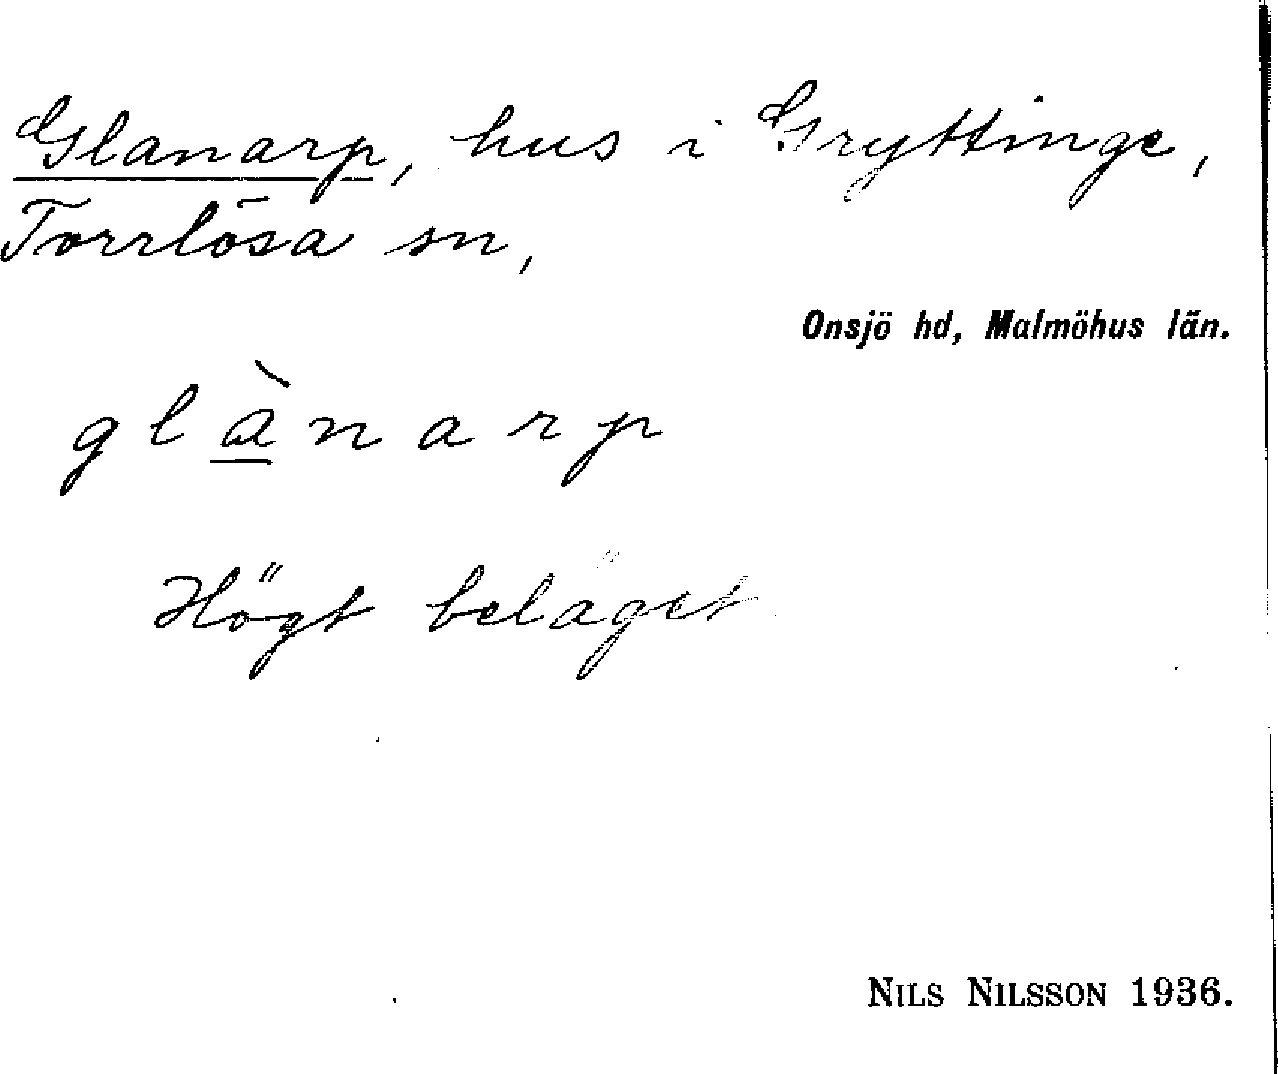 Glanarp, hus i Gryttinge,
Torrlösa sn,
Onsjö hd, Malmöhus län.
glànarp
Högt beläget
NILS NILSSON 1936.